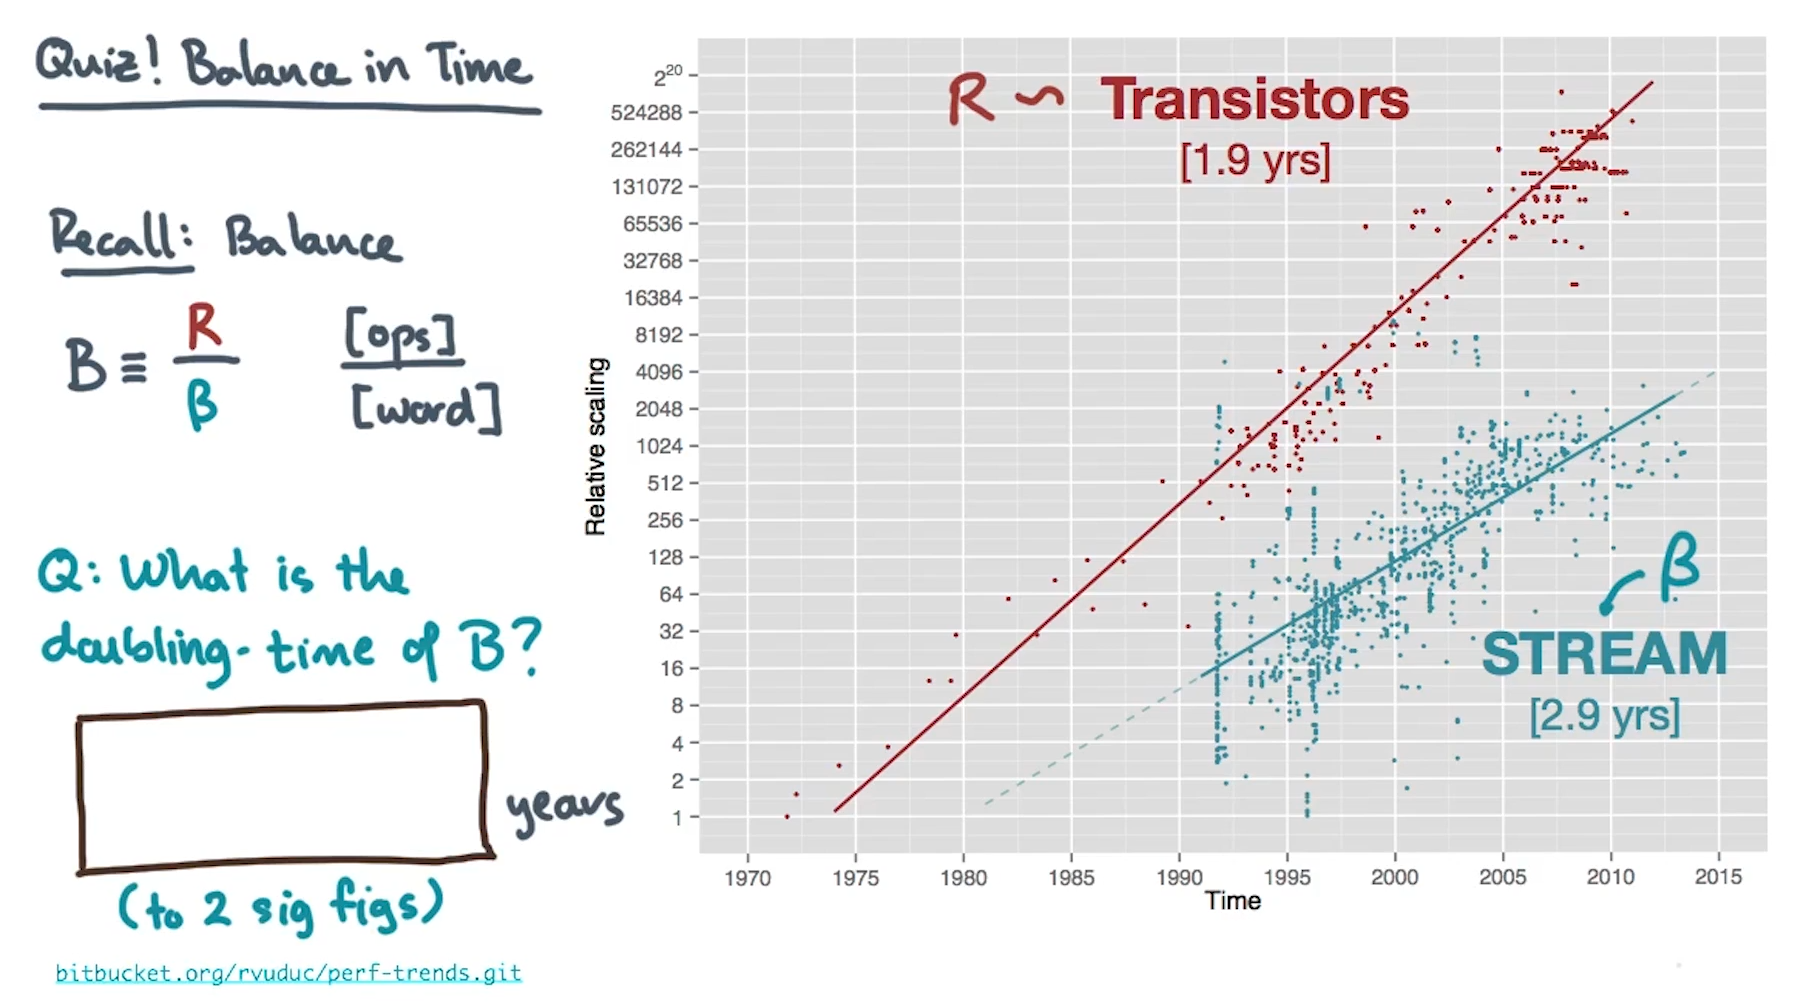 Quiz! Balance in Time
Recall: Balance
B ≡ R / β [ops] / [word]
Q: What is the
doubling-time of B?
years
(to 2 sig figs)
bitbucket.org/rvuduc/perf-trends.git
R ~ Transistors
[1.9 yrs]
β
STREAM
[2.9 yrs]
Relative scaling
2^20
524288
262144
131072
65536
32768
16384
8192
4096
2048
1024
512
256
128
64
32
16
8
4
2
1
1970 1975 1980 1985 1990 1995 2000 2005 2010 2015
Time